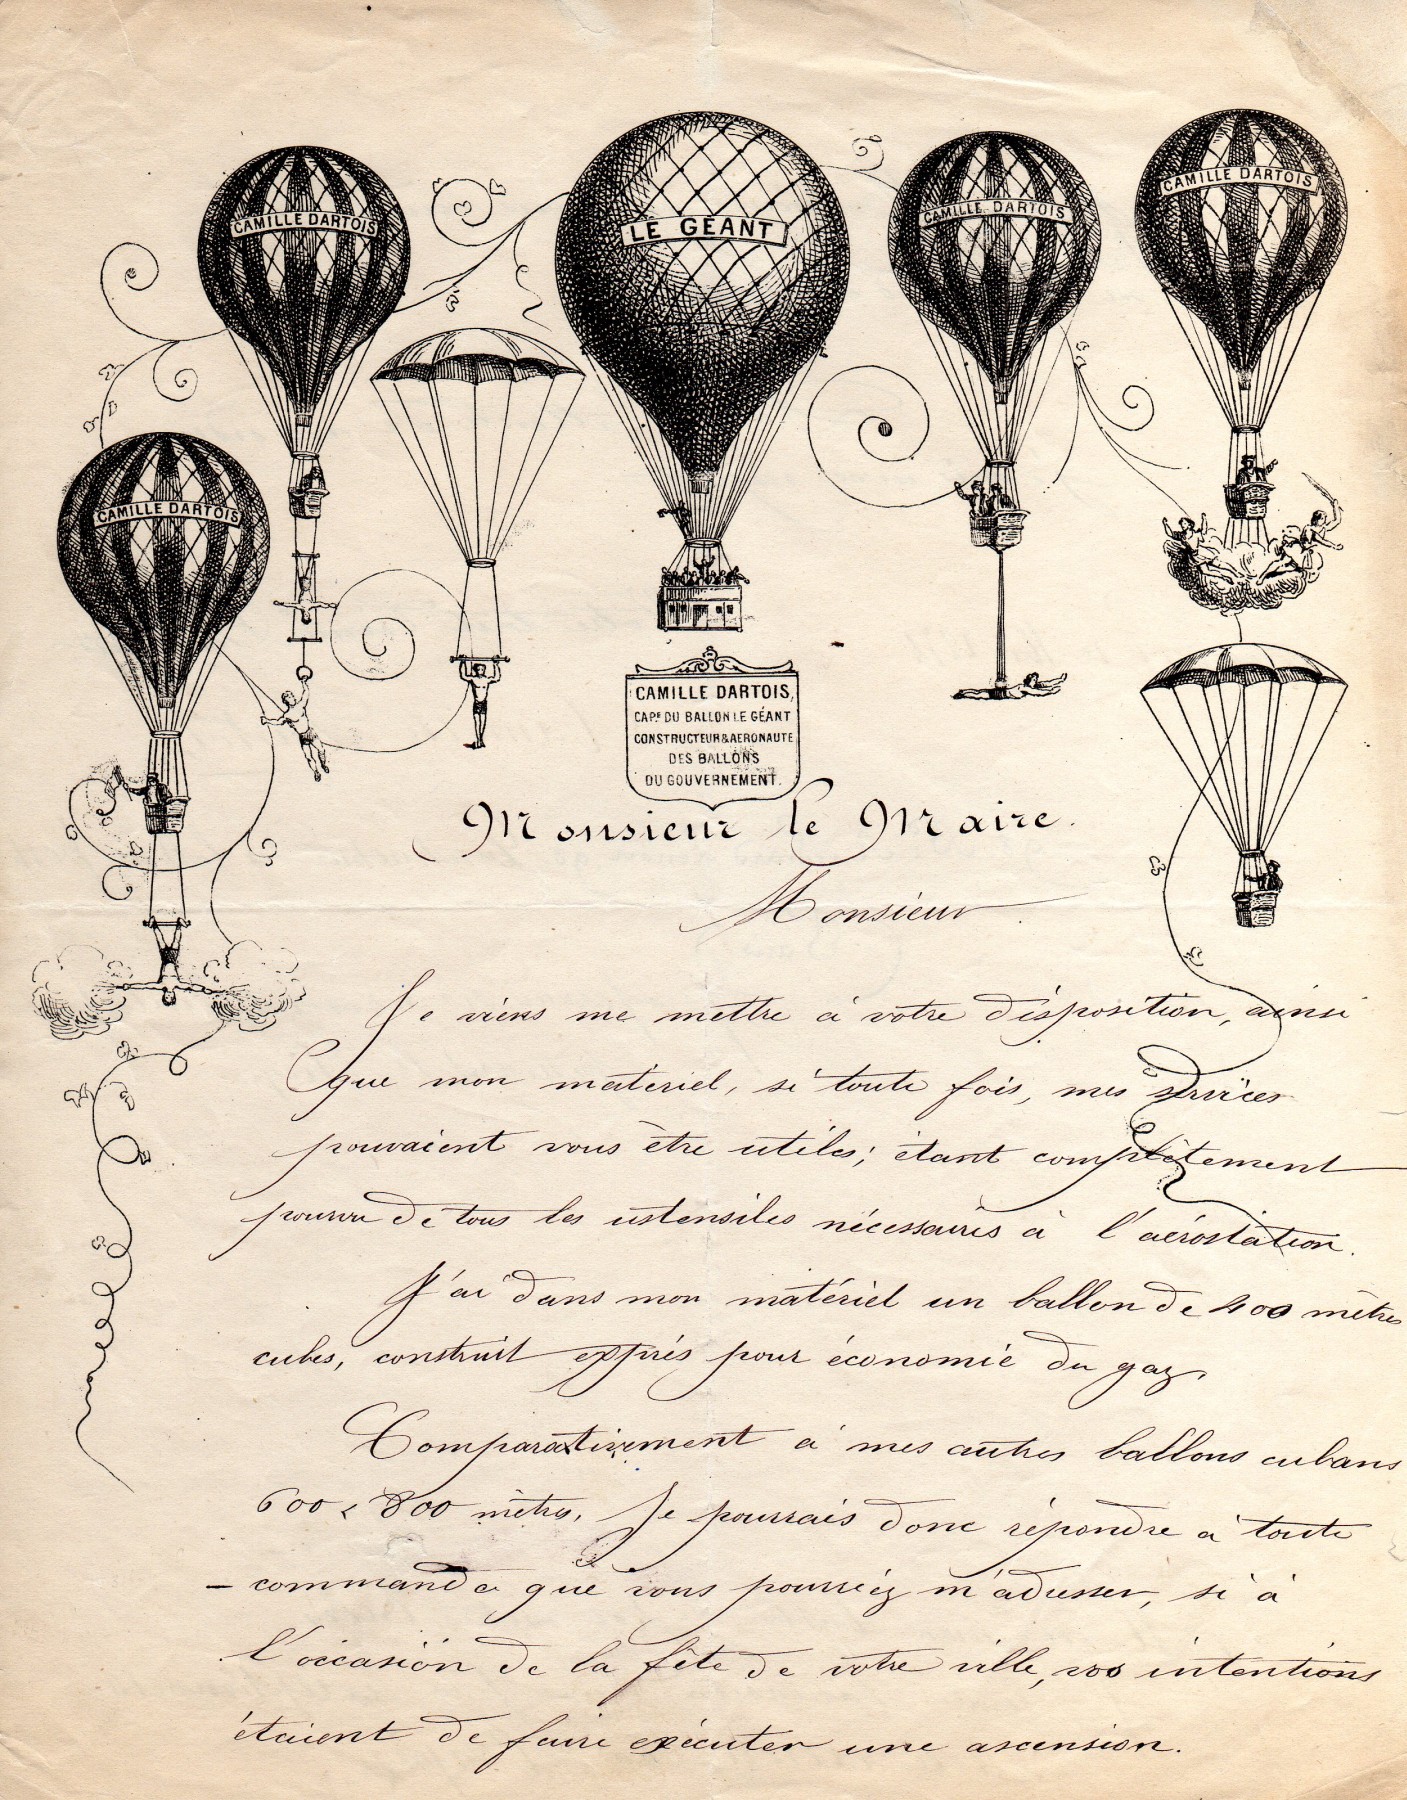 CAMILLE DARTOIS
LE GÉANT
CAMILLE DARTOIS
CAMILLE DARTOIS
CAMILLE DARTOIS
CAMILLE DARTOIS,
CAPᴱ DU BALLON LE GÉANT
CONSTRUCTEUR & AERONAUTE
DES BALLONS
DU GOUVERNEMENT.
Monsieur le Maire.
Monsieur.
Je viens me mettre à votre disposition, ainsi
que mon matériel, si toute fois, mes services
pouvaient vous être utiles; étant complètement
pourvu de tous les ustensiles nécessaires à l'aérostation.
J'ai dans mon matériel un ballon de 400 mètres
cubes, construit exprès pour économie du gaz,
Comparativement à mes autres ballons cubans
600 & 800 mètres, Je pourrais donc répondre à toute
commande que vous pourriéz m'adresser, si à
l'occasion de la fête de votre ville, vos intentions
étaient de faire exécuter une ascension.